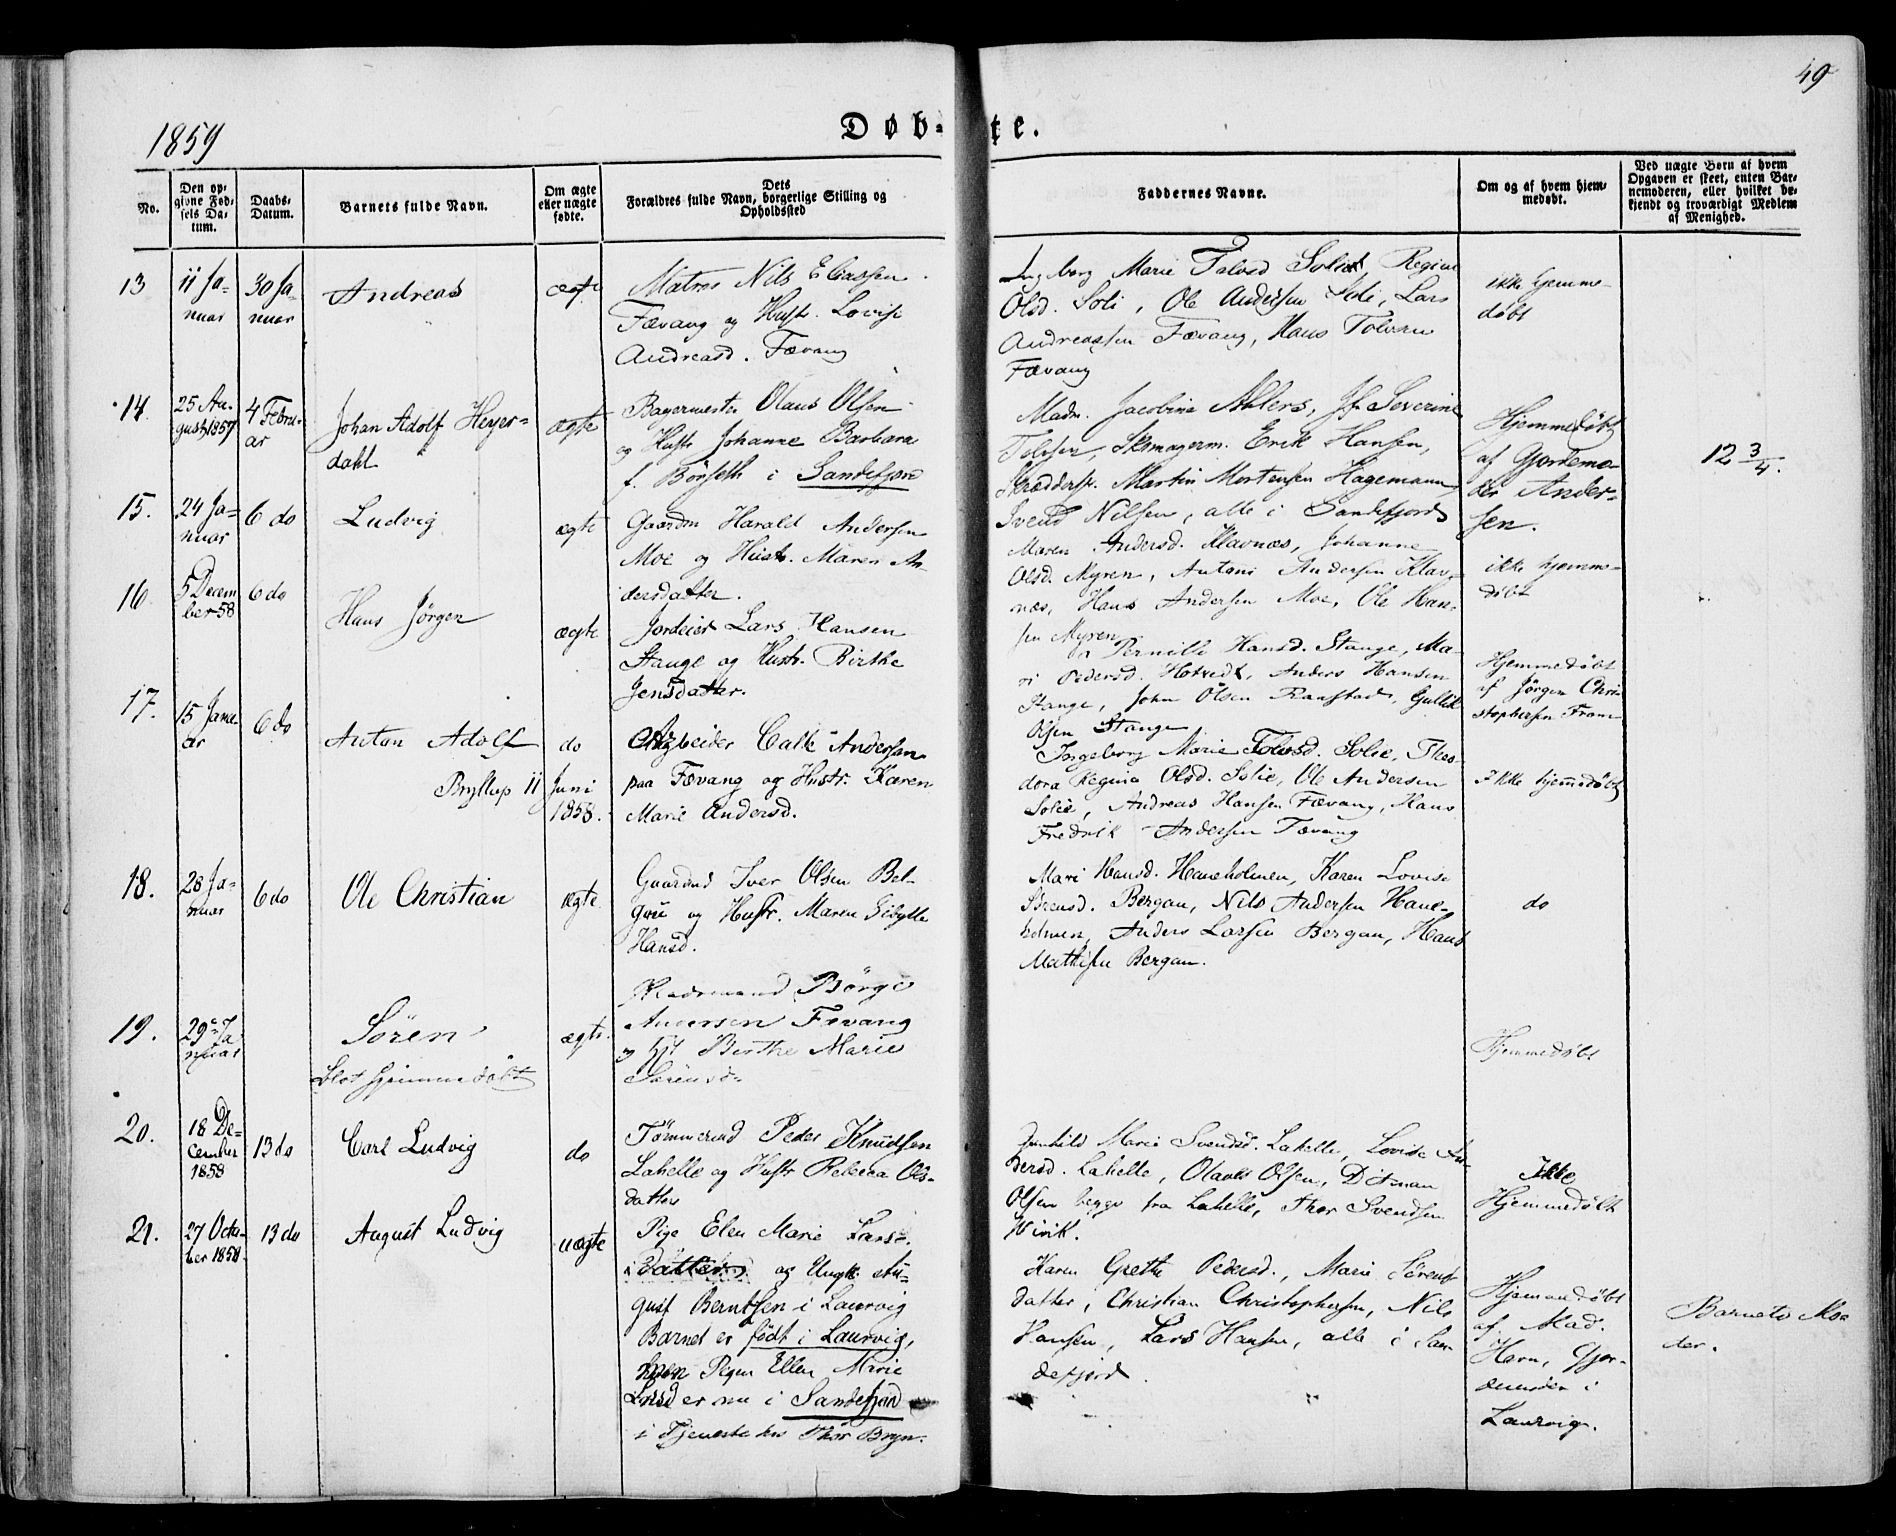 49
1859
Døb-te.
No.
Den op-
givne Fød-
sels Da-
tum.
Daabs-
Datum.
Barnets fulde Navn.
Om ægte
eller uægte
fødte.
Dets
Forældres fulde Navn, borgerlige Stilling og
Opholdssted
Faddernes Navne.
Om og af hvem hjem-
medøbt.
Ved uægte Børn af hvem
Opgaven er skeet, enten Bar-
nemoderen, eller hvilket be-
kjendt og troværdigt Medlem
af Menighed.
13
11 Ja-
nuar
30 Ja-
nuar
Andreas
ægte
Matros Nils Eliassen
Fævang og Hustr. Lovise
Andreasd. Fævang
Ingeborg Marie Tolvsd Solie, Regine
Olsd. Soli, Ole Andersen Soli, Lars
Andreassen Fævang, Hans Tolvsen
Fævang
ikke hjemme-
døbt
14.
25 Au-
gust 1857
4 Febru-
ar
Johan Adolf Heyer-
dahl
ægte
Bagermester Olaus Olsen
og Hustr Johanne Barbara
f. Börseth i Sandefjord
Madm. Jacobine Ahlers, Jfr Severine
Tolvsen, Skomagerm. Erik Hansen,
Skræddersv. Martin Mortensen Hagemann,
Svend Nilsen, alle i Sandefjord
Hjemmedøbt
af Gjordemo-
der Ander-
sen.
12 3/4.
15.
24 Ja-
nuar
6 do
Ludvig
ægte
Gaardm Harald Andersen
Moe og Hustr. Maren An-
dersdatter.
Maren Andersd. Klavnæs, Johanne
Olsd. Myren, Antoni Andersen Klav-
næs, Hans Andersen Moe, Ole Han-
sen Myren
ikke hjemme-
døbt
16.
5 Decem-
ber 58
6 do
Hans Jörgen
ægte
Jordeier Lars Hansen
Stange og Hustr. Birthe
Jensdatter.
Pernille Hansd. Stange, Ma-
ri Pedersd. Hotvedt, Anders Hansen
Stange, John Olsen Ranstad, Gullik
Olsen Stange
Hjemmedøbt
af Jörgen Chri-
stophersen Fram
17.
15 Janu-
ar
6 do
Anton Adolf
do
Bryllup 11 Juni
1858.
Arbeider Calle Andersen
paa Fævang og Hustr. Karen
Marie Andersd.
Ingeborg Marie Tolvsd. Solie, Theo-
dora Regine Olsd. Solie, Ole Andersen
Solie, Andreas Hansen Fævang, Hans
Fredrik Andersen Fævang
Ikke hjemmedøbt
18.
28 Ja-
nuar
6 do
Ole Christian
ægte
Gaardmd Iver Olsen Bel-
gvu og Hustr. Maren Sibylle
Hansd.
Mari Hansd. Haneholmen, Karen Lovise
Sörensd. Bergan, Nils Andersen Hane-
holmen, Anders Larsen Bergan, Hans
Mathisen Bergan.
do
19.
29 Ja-
nuar
Sören
blot hjemmedöbt
ægte
Börge
Andersen Fevang
og Hst Berthe Marie
Sörensd.
Hjemmedøbt
20.
18 De-
cember
1858
13 do
Carl Ludvig
do
Tömmermd Peder Knudsen
Lahelle og Hustr Rebecca Ols-
datter
Gunhild Marie Svendsd. Lahelle, Lovise An-
dersd. Lahelle, Olaves Olsen, Ditman
Olsen begge fra Lahelle, Thor Svendsen
Virik.
Ikke
Hjemmedøbt
21.
27 Octo-
ber 1858.
13 do
August Ludvig
uægte
Pige Elen Marie Lars-
datter og Ungk. Au-
gust Berntsen i Laurvig
Barnet er født i Laurvig,
men Pigen Ellen Marie
Larsd er nu i Sandefjord
i Tjeneste hos Thor Bryn.
Karen Grethe Pedersd., Marie Sörens-
datter, Christian Christophersen, Nils
Hansen, Lars Hansen, alle i San-
defjord.
Hjemmedøbt
af Mad.
Horn, Gjor-
demoder i
Laurvig.
Barnets Mo-
der.